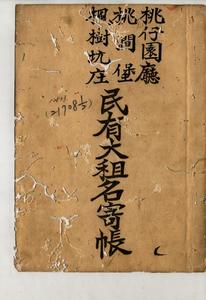 桃仔園廳
桃澗堡
坑庄
民有大租名寄帳
(217085)